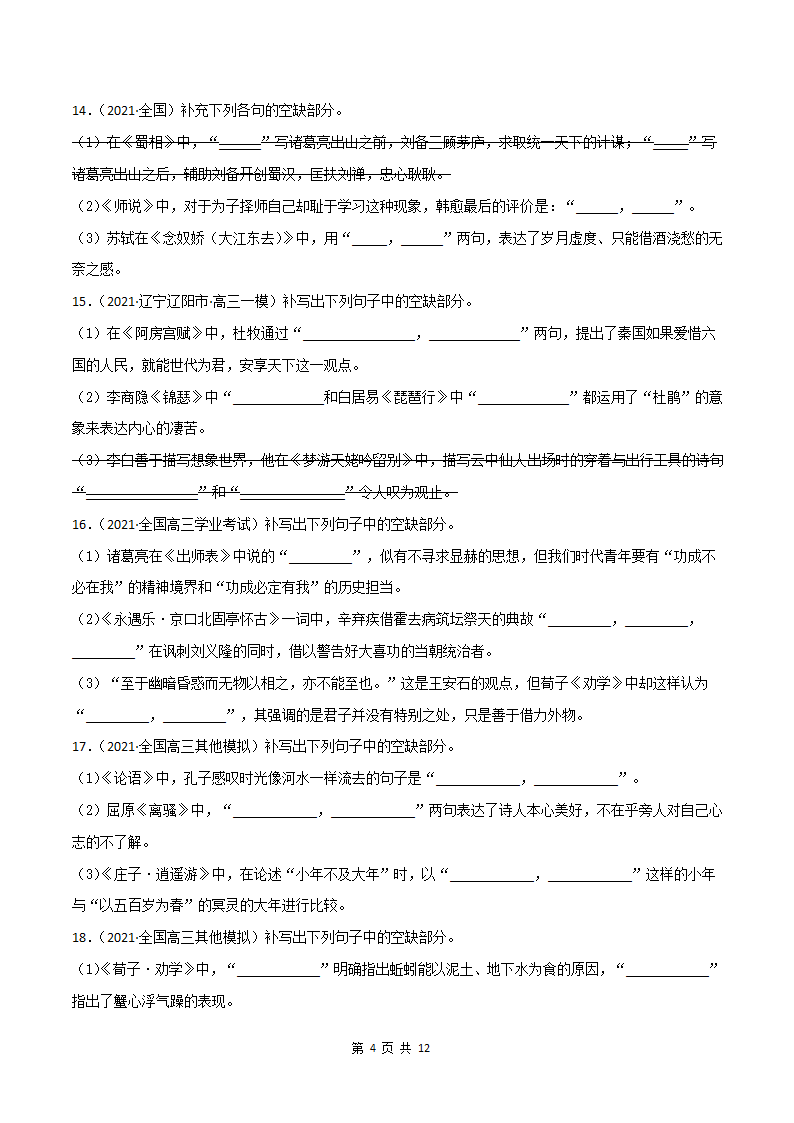 14.（2021·全国）补充下列各句的空缺部分。
（1）在《蜀相》中，“______”写诸葛亮出山之前，刘备三顾茅庐，求取统一天下的计谋，“_____”写
诸葛亮出山之后，辅助刘备开创蜀汉，匡扶刘禅，忠心耿耿。
（2）《师说》中，对于为子择师自己却耻于学习这种现象，韩愈最后的评价是：“______，______”。
（3）苏轼在《念奴娇（大江东去）》中，用“_____，______”两句，表达了岁月虚度、只能借酒浇愁的无
奈之感。
15.（2021·辽宁辽阳市·高三一模）补写出下列句子中的空缺部分。
（1）在《阿房宫赋》中，杜牧通过“________________，_____________”两句，提出了秦国如果爱惜六
国的人民，就能世代为君，安享天下这一观点。
（2）李商隐《锦瑟》中“_____________和白居易《琵琶行》中“_____________”都运用了“杜鹃”的意
象来表达内心的凄苦。
（3）李白善于描写想象世界，他在《梦游天姥吟留别》中，描写云中仙人出场时的穿着与出行工具的诗句
“________________”和“_______________”令人叹为观止。
16.（2021·全国高三学业考试）补写出下列句子中的空缺部分。
（1）诸葛亮在《出师表》中说的“_________”，似有不寻求显赫的思想，但我们时代青年要有“功成不
必在我”的精神境界和“功成必定有我”的历史担当。
（2）《永遇乐·京口北固亭怀古》一词中，辛弃疾借霍去病筑坛祭天的典故“_________，_________，
_________”在讽刺刘义隆的同时，借以警告好大喜功的当朝统治者。
（3）“至于幽暗昏惑而无物以相之，亦不能至也。”这是王安石的观点，但荀子《劝学》中却这样认为
“_________，_________”，其强调的是君子并没有特别之处，只是善于借力外物。
17.（2021·全国高三其他模拟）补写出下列句子中的空缺部分。
（1）《论语》中，孔子感叹时光像河水一样流去的句子是“____________，____________”。
（2）屈原《离骚》中，“____________，____________”两句表达了诗人本心美好，不在乎旁人对自己心
志的不了解。
（3）《庄子·逍遥游》中，在论述“小年不及大年”时，以“____________，____________”这样的小年
与“以五百岁为春”的冥灵的大年进行比较。
18.（2021·全国高三其他模拟）补写出下列句子中的空缺部分。
（1）《荀子·劝学》中，“____________”明确指出蚯蚓能以泥土、地下水为食的原因，“____________”
指出了蟹心浮气躁的表现。
第 4 页 共 12